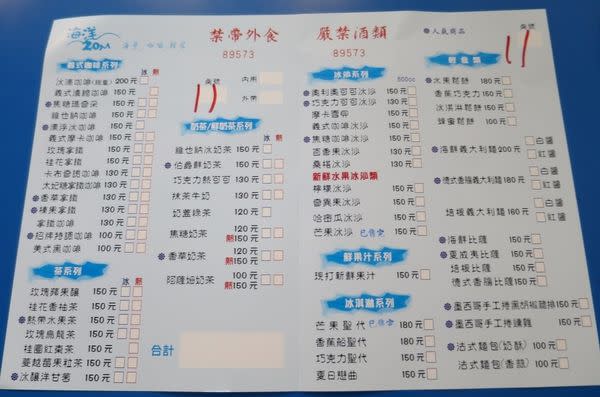 海洋
20M
禁帶外食
89573
嚴禁酒類
89573
人氣商品
桌號
11
義式咖啡系列
冰 熱
桌號
11
內用
外帶
200元
義式濃縮咖啡 100元
焦糖瑪奇朵 150元
維也納咖啡 150元
漂浮冰咖啡 150元
義式摩卡咖啡 150元
玫瑰拿鐵 130元
桂花拿鐵 130元
卡布奇諾咖啡 130元
太妃糖拿鐵咖啡 130元
香草拿鐵 130元
榛果拿鐵 130元
招牌特調咖啡 100元
美式黑咖啡 100元
茶系列
冰 熱
玫瑰蘋果釀 150元
桂花香柚茶 150元
熱帶水果茶 150元
玫瑰烏龍茶 150元
桂圓紅棗茶 150元
蔓越莓果粒茶 150元
冰釀洋甘菊 150元
奶茶/鮮奶茶系列
冰 熱
維也納冰奶茶 150元
伯爵鮮奶茶 150元
巧克力熱可可 130元
抹茶牛奶 130元
奶蓋綠茶 120元
焦糖奶茶 120元
熱150元
香草奶茶 120元
熱150元
阿薩姆奶茶 100元
熱120元
合計
冰沙系列
500cc
奧利奧可可冰沙 150元
巧克力可可冰沙 130元
摩卡雪仰 150元
義式咖啡冰沙 150元
焦糖咖啡冰沙 150元
百香果冰沙 130元
桑椹冰沙 130元
新鮮水果冰沙類
檸檬冰沙 150元
奇異果冰沙 150元
哈密瓜冰沙 150元
芒果冰沙 已售完
鮮果汁系列
現打新鮮果汁 150元
冰淇淋系列
芒果聖代 已售完 180元
香蕉船聖代 180元
巧克力聖代 150元
夏日戀曲 150元
輕食類
水果鬆餅 180元
香蕉巧克力 150元
冰淇淋鬆餅 150元
蜂蜜鬆餅 100元
海鮮義大利麵 200元
白醬
紅醬
德式香腸義大利麵 180元
白醬
紅醬
培根義大利麵 160元
白醬
紅醬
海鮮比薩 150元
夏威夷比薩 150元
培根比薩 150元
德式香腸比薩 150元
墨西哥手工捲黑胡椒雞排 150元
墨西哥手工捲燻雞 150元
法式麵包(奶酥) 100元
法式麵包(香蒜) 100元